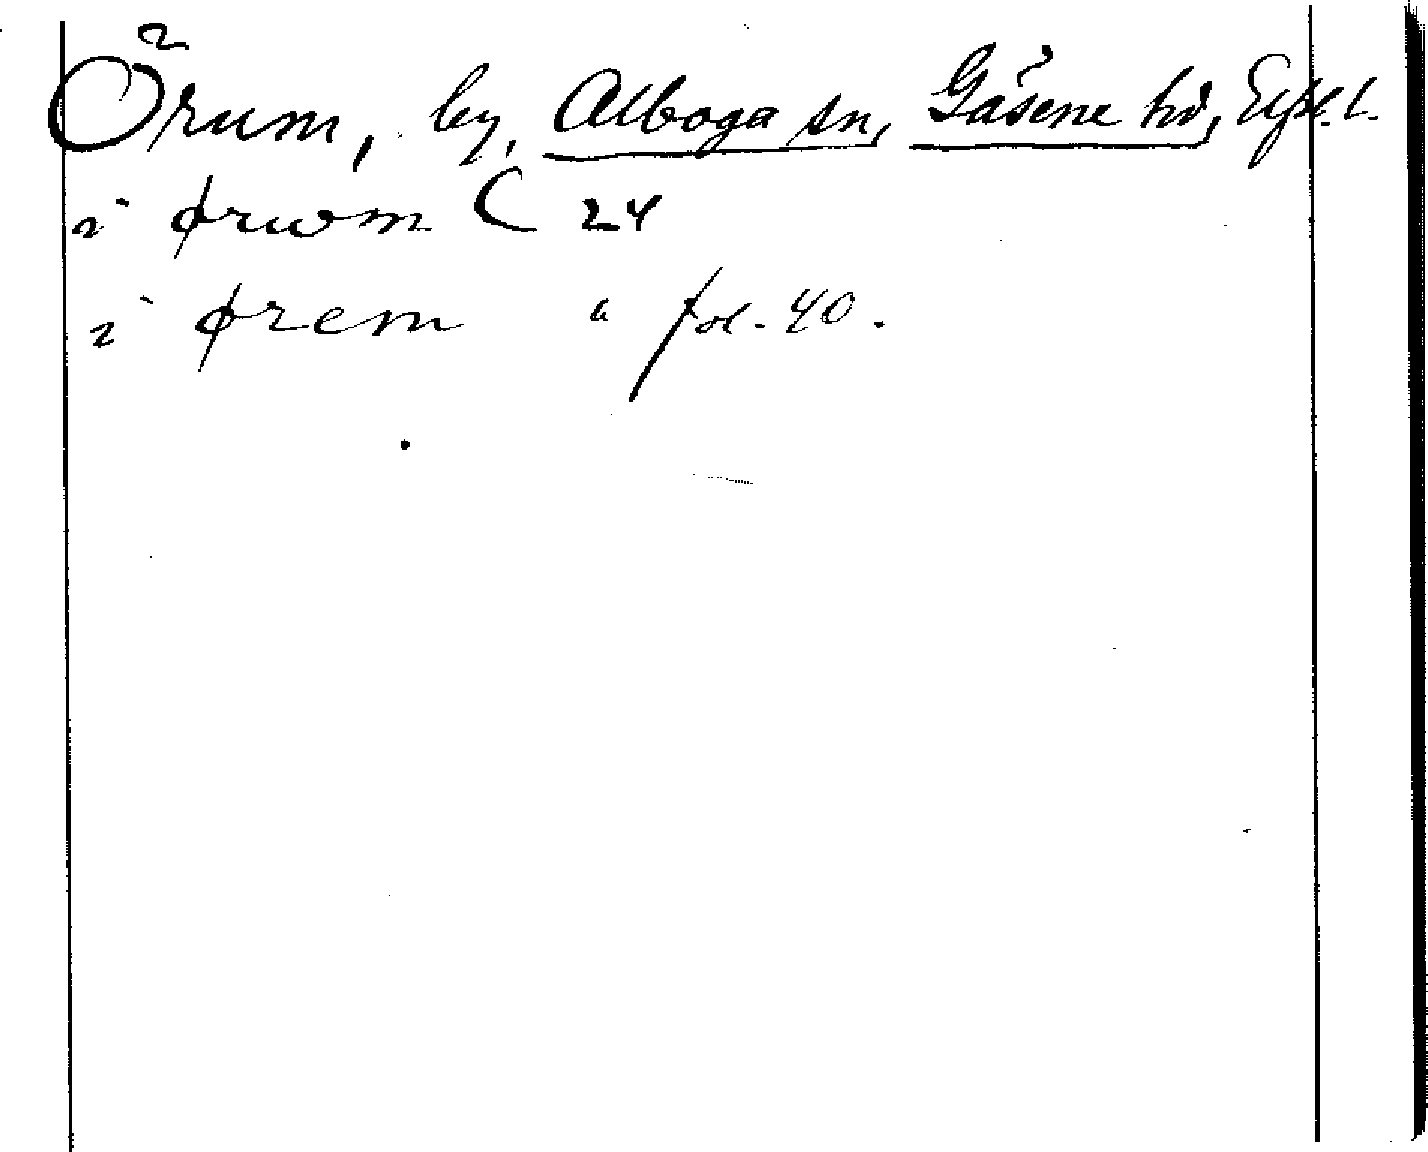 Örum, by, Alboga sn, Gäsene hd, Elfsb. l.
i ørwom C 24
i ørem " fol. 40.